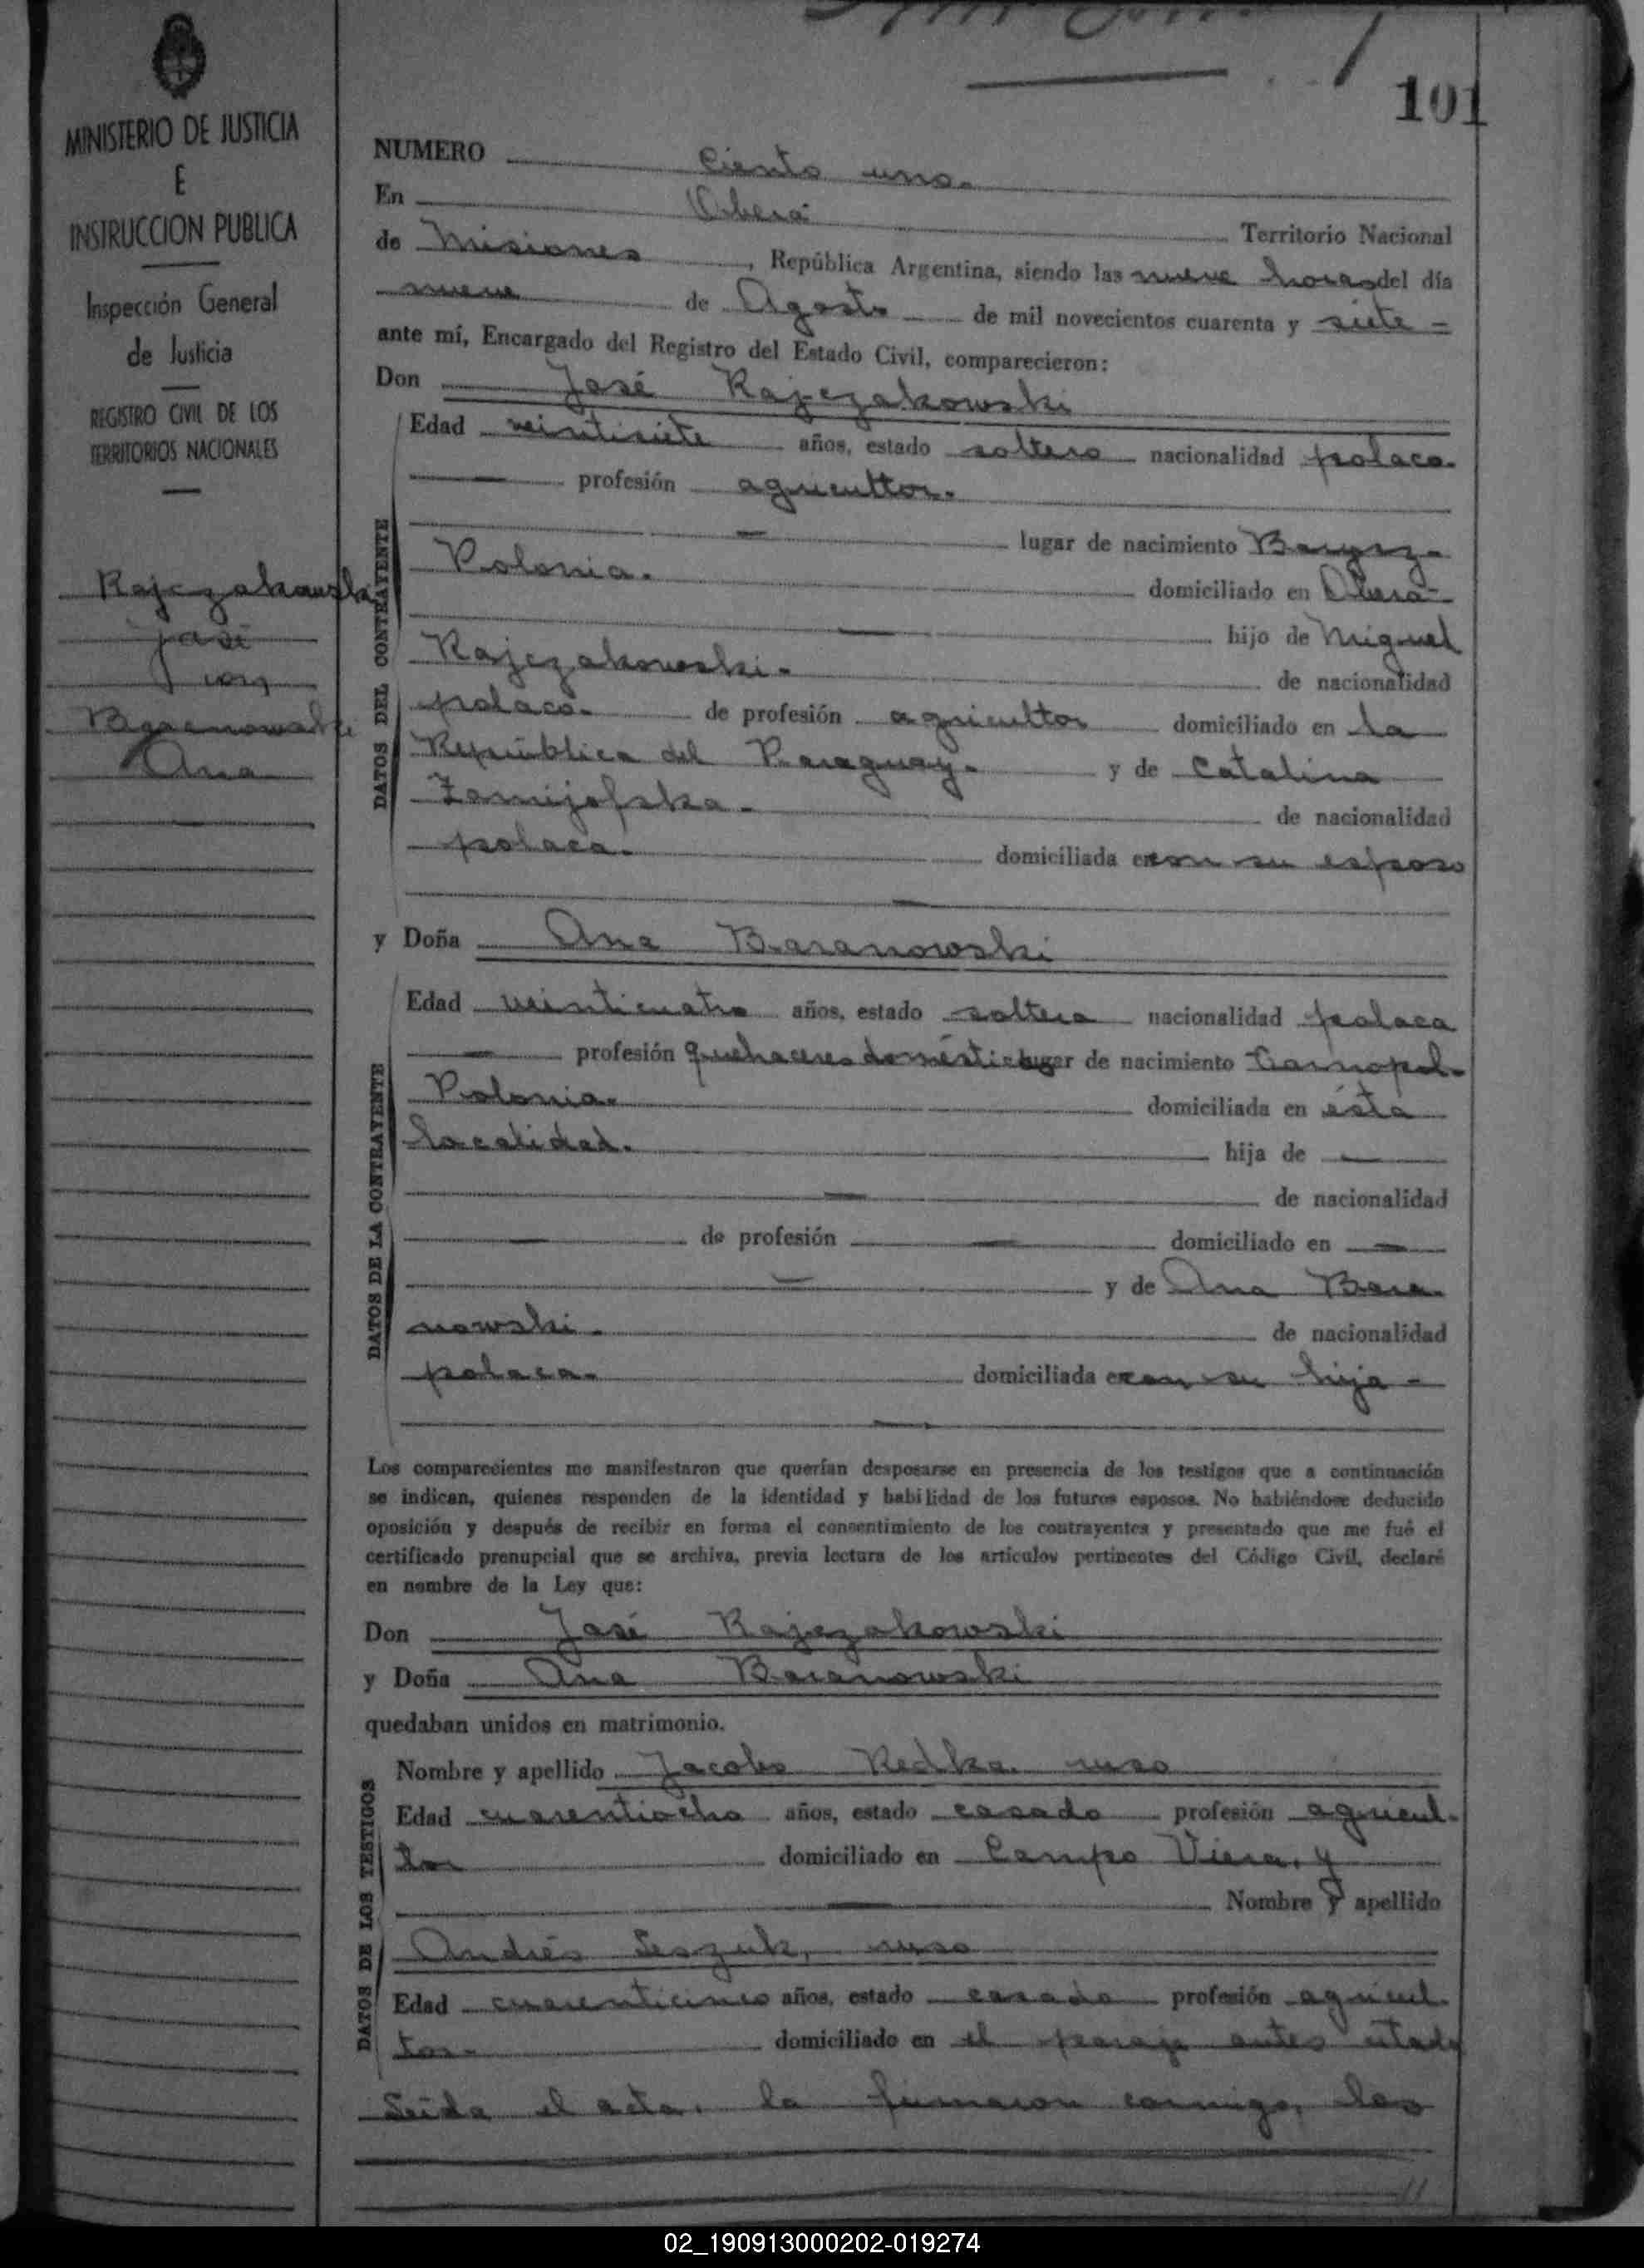 101
MINISTERIO DE JUSTICIA
E
INSTRUCCION PUBLICA
Inspección General
de Justicia
REGISTRO CIVIL DE LOS
TERRITORIOS NACIONALES
Rajczakowski
José
con
Baranowski
Ana
NUMERO Ciento uno.
En Oberá Territorio Nacional
de Misiones, República Argentina, siendo las nueve horas del día
nueve de Agosto de mil novecientos cuarenta y siete -
ante mí, Encargado del Registro del Estado Civil, comparecieron:
Don José Rajczakowski
DATOS DEL CONTRAYENTE
Edad veintisiete años, estado soltero nacionalidad polaco.
profesión agricultor.
lugar de nacimiento
Polonia. domiciliado en Oberá
hijo de Miguel
Rajczakowski. de nacionalidad
polaco. de profesión agricultor domiciliado en la
República del Paraguay. y de Catalina
Zamijofska. de nacionalidad
polaca. domiciliada en con su esposo
y Doña Ana Baranowski
DATOS DE LA CONTRAYENTE
Edad veinticuatro años, estado soltera nacionalidad polaca
profesión quehaceres domésticos lugar de nacimiento Tarnopol.
Polonia. domiciliada en ésta
localidad. hija de
de nacionalidad
de profesión domiciliado en
y de Ana Bara-
nowski. de nacionalidad
polaca. domiciliada en con su hija -
Los comparecientes me manifestaron que querían desposarse en presencia de los testigos que a continuación
se indican, quienes responden de la identidad y habilidad de los futuros esposos. No habiéndose deducido
oposición y después de recibir en forma el consentimiento de los contrayentes y presentado que me fué el
certificado prenupcial que se archiva, previa lectura de los artículos pertinentes del Código Civil, declaré
en nombre de la Ley que:
Don José Rajczakowski
y Doña Ana Baranowski
quedaban unidos en matrimonio.
DATOS DE LOS TESTIGOS
Nombre y apellido Jacobo Redka. ruso
Edad cuarentiocho años, estado casado profesión agricul-
tor domiciliado en Campo Viera, y
Nombre y apellido
Andrés Leszuk, ruso
Edad cuarenticinco años, estado casado profesión agricul-
tor. domiciliado en el paraje antes citado
Leída el acta, la firmaron conmigo, los
02_190913000202-019274